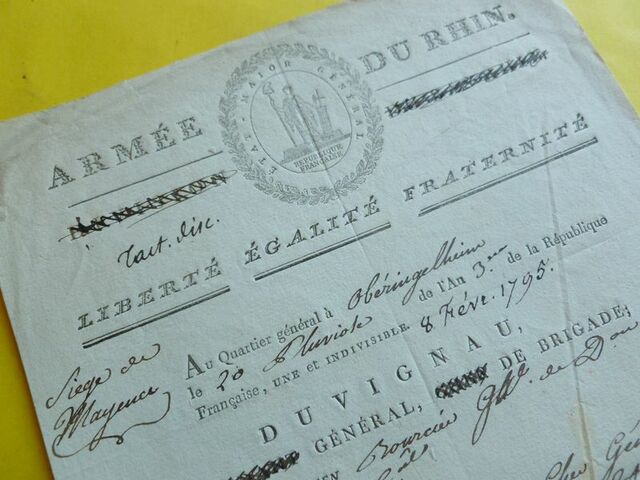 ARMÉE DU RHIN.
ÉTAT-MAJOR GÉNÉRAL
RÉPUBLIQUE
FRANÇAISE
LIBERTÉ ÉGALITÉ FRATERNITÉ
Siege de
Mayence
AU Quartier général à Obéringelheim
le 20 Pluviose de l'An 3me de la République
Française, UNE ET INDIVISIBLE 8 Févr. 1795.
DUVIGNAU,
GÉNÉRAL, DE BRIGADE;
Bourcier Gal de Don